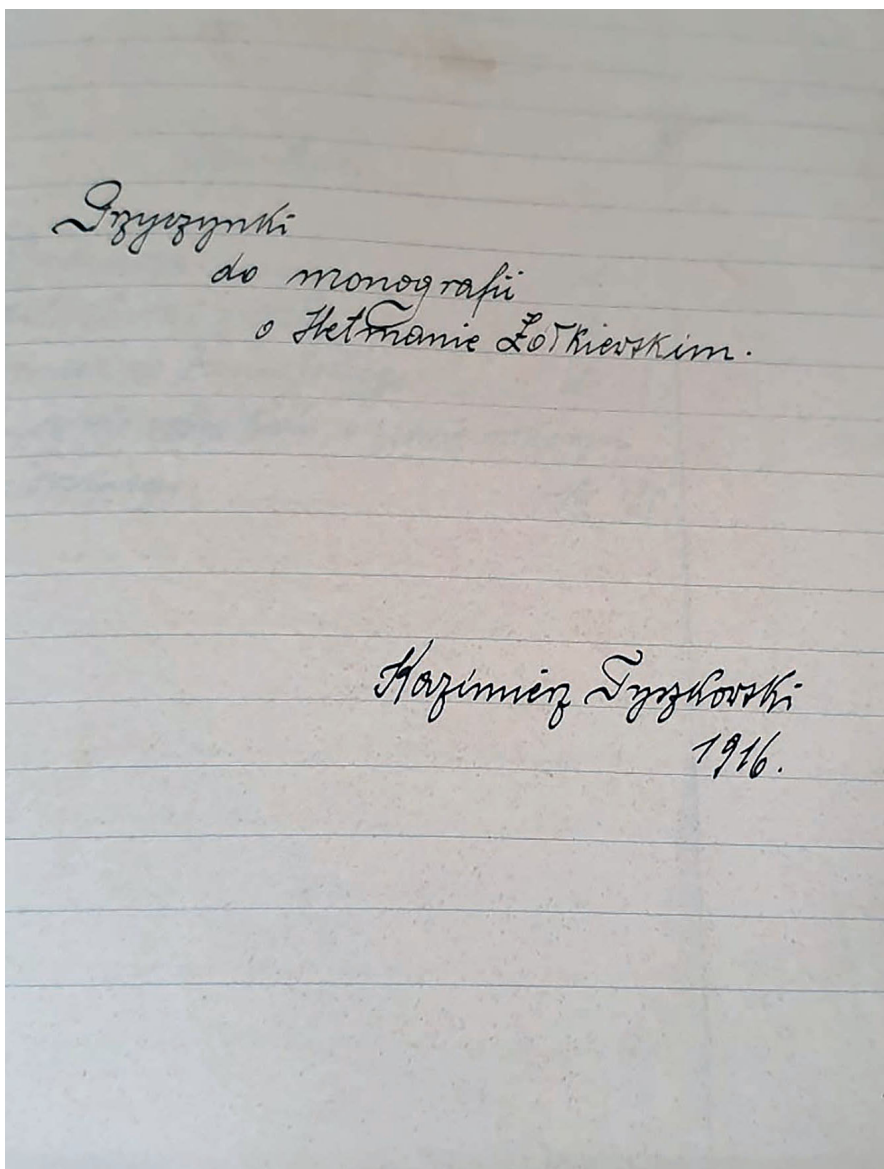 Przyczynki
do monografii
o Hetmanie Żółkiewskim.
Kazimierz Tyszkowski
1916.